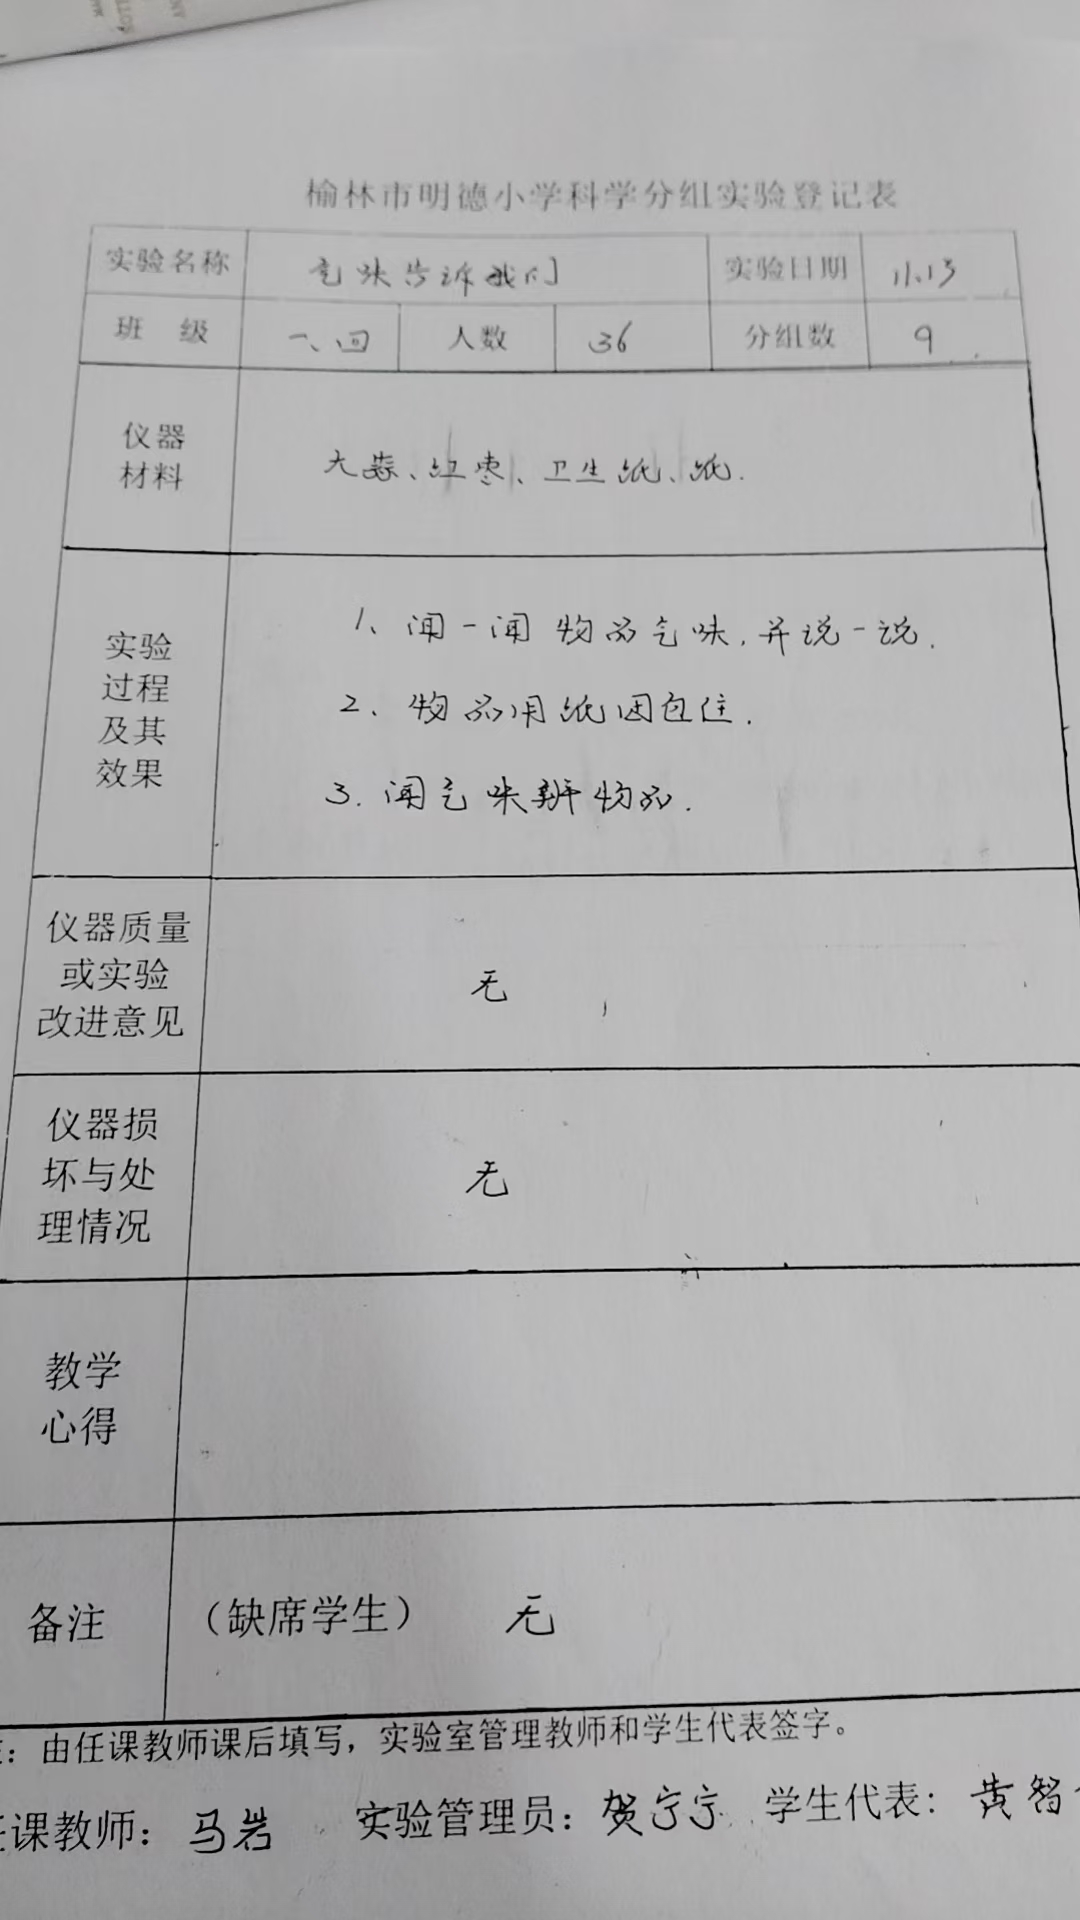 榆林市明德小学科学分组实验登记表
实验名称 气味告诉我们 实验日期 11.13
班 级 一、四 人数 36 分组数 9
仪器
材料
大蒜、红枣、卫生纸、纸.
实验
过程
及其
效果
1、闻一闻物品气味,并说一说.
2、物品用纸团包住.
3.闻气味辨物品.
仪器质量
或实验
改进意见
无
仪器损
坏与处
理情况
无
教学
心得
备注 (缺席学生) 无
：由任课教师课后填写，实验室管理教师和学生代表签字。
课教师：马岩 实验管理员：贺宁宁 学生代表：黄智